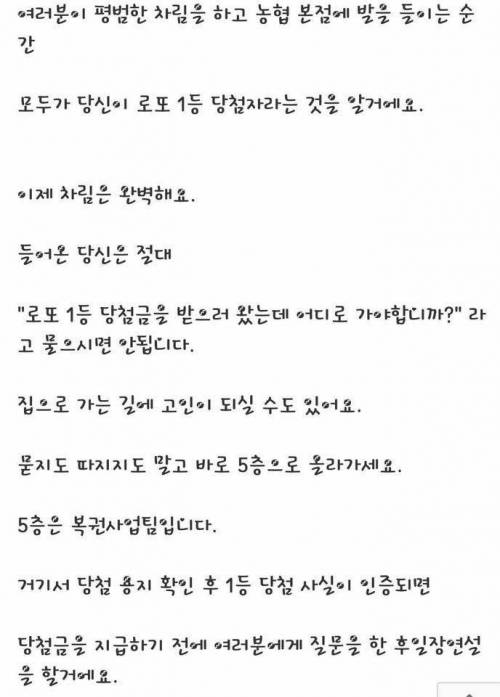 여러분이 평범한 차림을 하고 농협 본점에 발을 들이는 순
간
모두가 당신이 로또 1등 당첨자라는 것을 알거에요.
이제 차림은 완벽해요.
들어온 당신은 절대
"로또 1등 당첨금을 받으러 왔는데 어디로 가야합니까?" 라
고 물으시면 안됩니다.
집으로 가는 길에 고인이 되실 수도 있어요.
묻지도 따지지도 말고 바로 5층으로 올라가세요.
5층은 복권사업팀입니다.
거기서 당첨 용지 확인 후 1등 당첨 사실이 인증되면
당첨금을 지급하기 전에 여러분에게 질문을 한 후일장연설
을 할거에요.